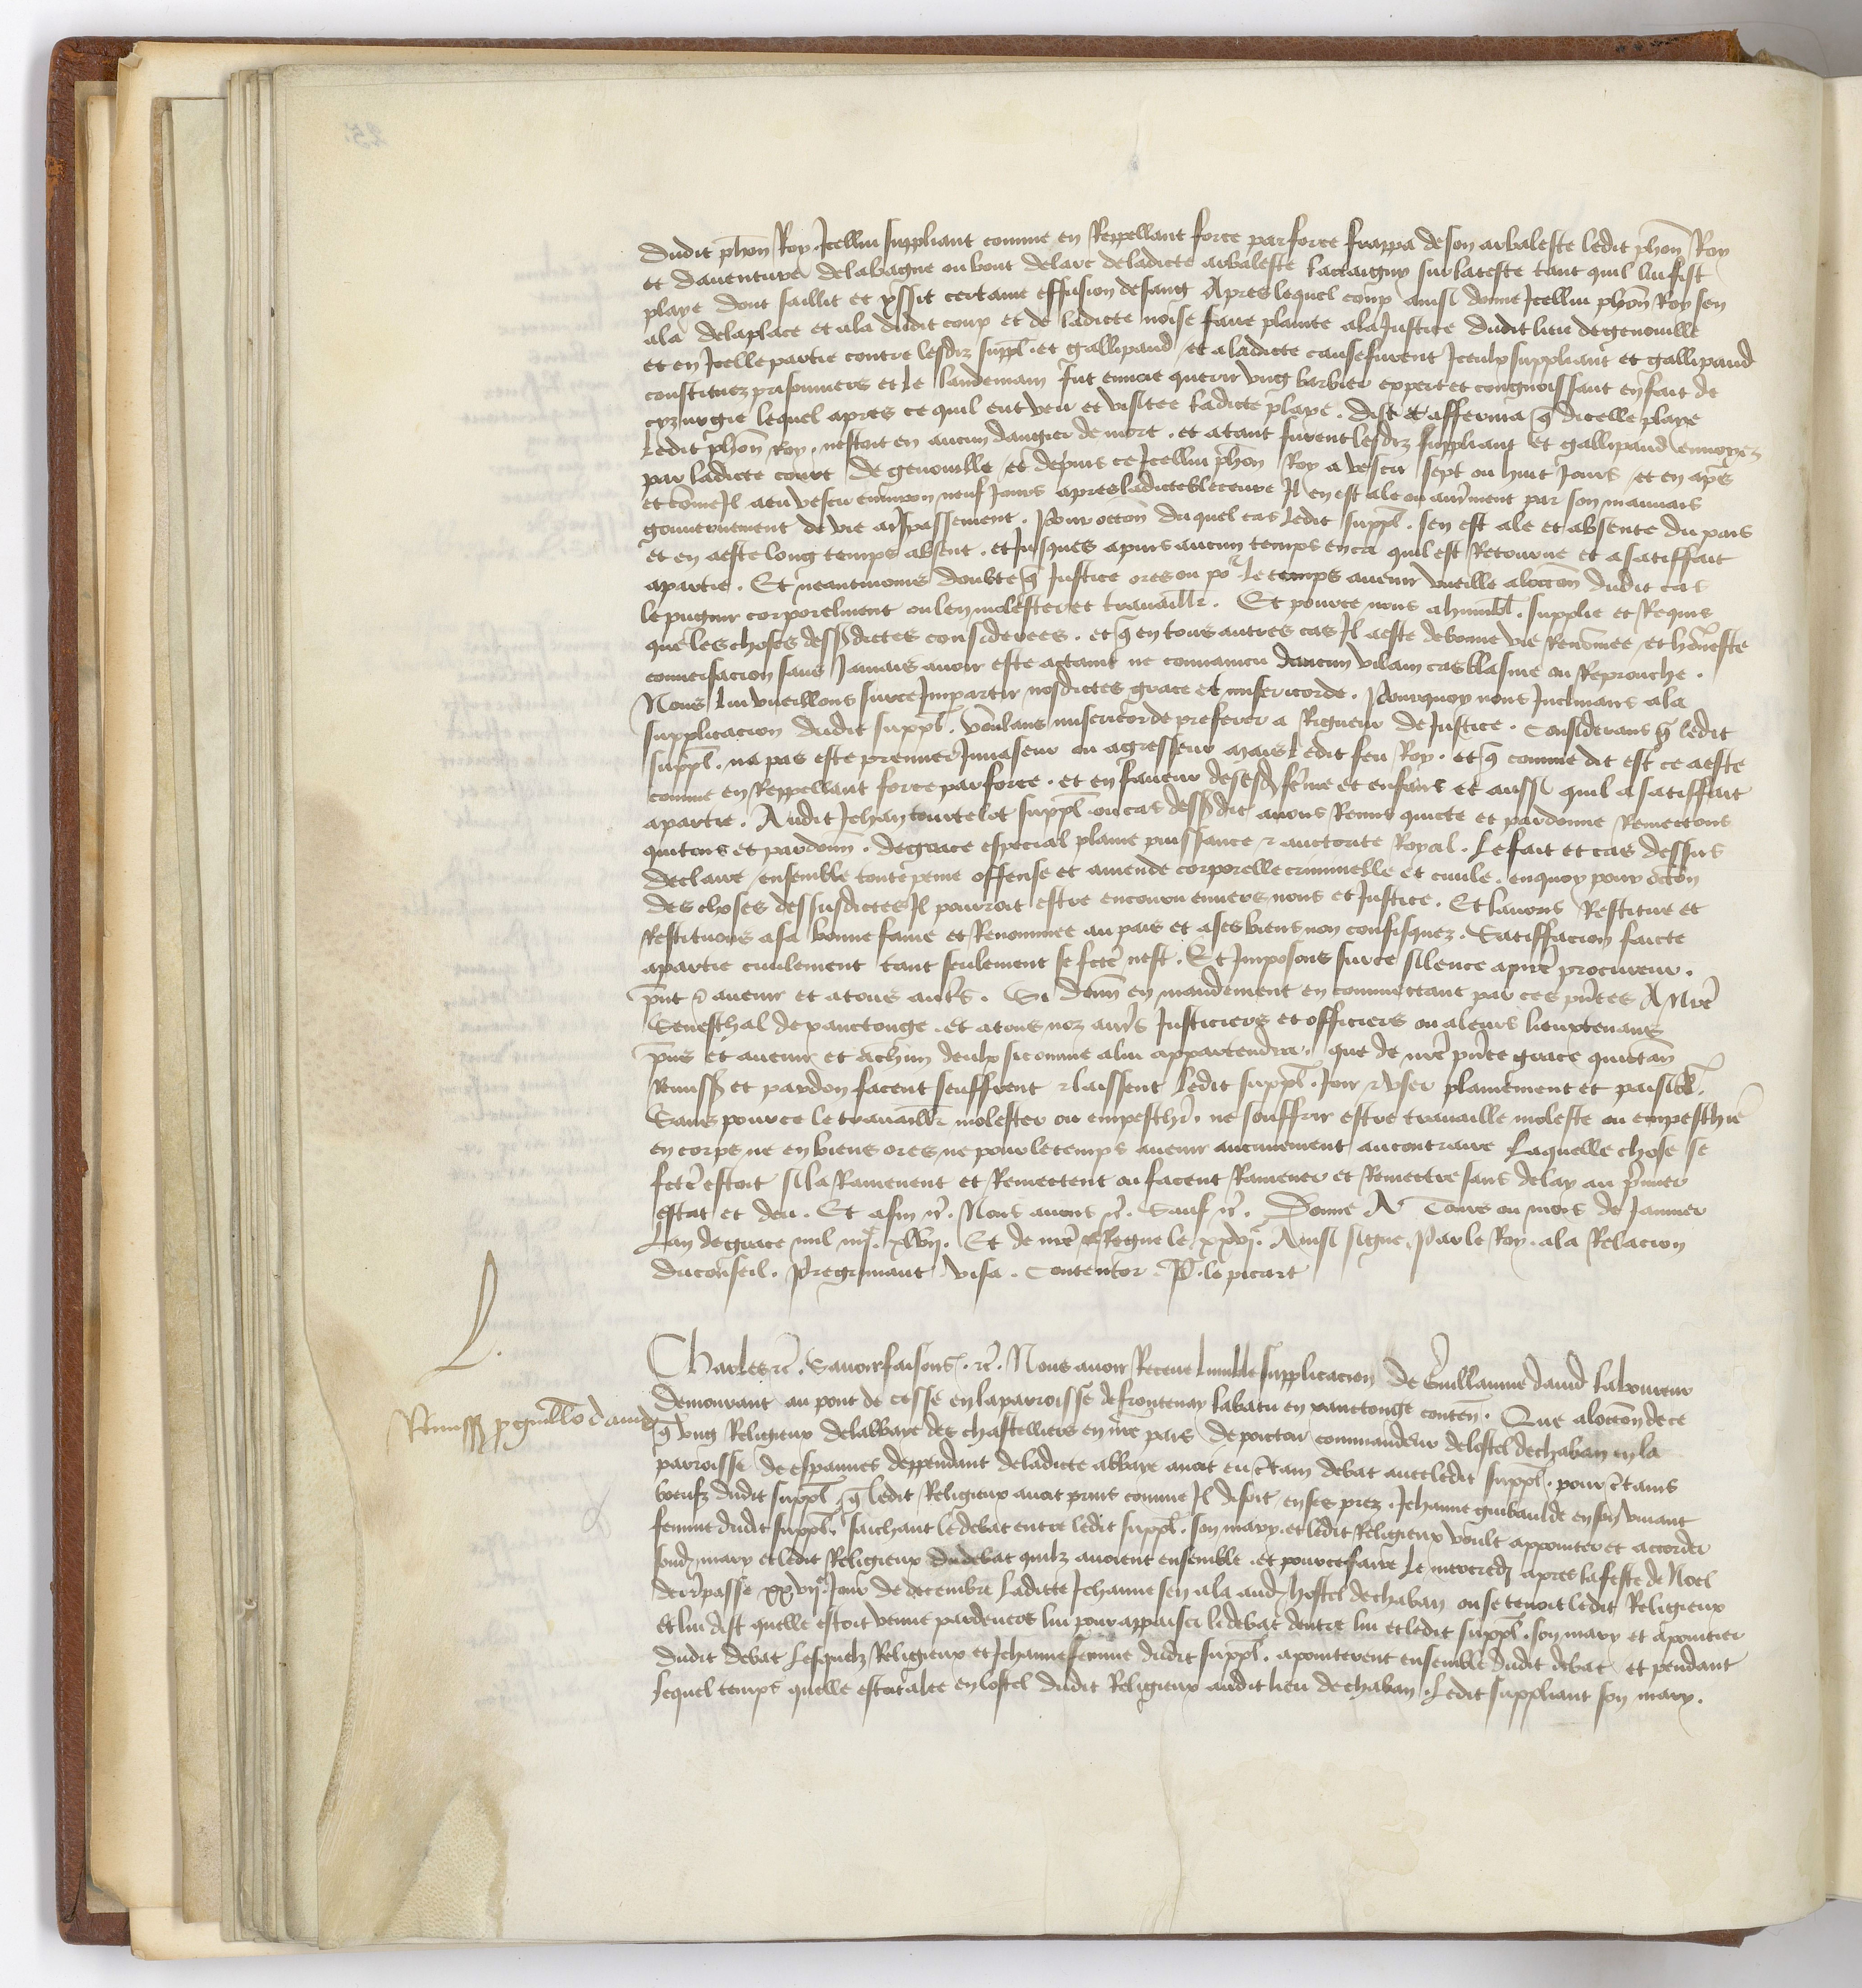 dudit phōn Roy Icellui suppliant comme en Reppellant force par force frappa de son arbaleste ledit phōn Roy
et dauenture de labague ou bout delarc deladicte arbaleste lactaigny sur lateste tant quil lui fist
playe dont saillit et yssit certaine effusion desang Apres lequel coup ainsi donne Icellui phōn Roy sen
ala delaplace et ala dudit coup et de ladicte noise faire plainte ala Justice dudit lieu degenouille
et en Icelle partie contre lesdiz suppl. et gallipaud et aladicte cause furent Iceulx suppliant et gallipaud
constituez prisonniers et le landemain fut enuoie querir vng barbier expert et congnoissant en fait de
cyrurgie lequel apres ce quil eut veu et visitee ladicte playe. dist et afferma q̄ dicelle playe
ledit phōn Roy. nestoit en aucun dangier de mort. et atant furent lesdiz suppliant et gallipaud enuoyez
par ladicte court de genouille et depuis ce Icellui phōn Roy a vescu sept ou huit Jours et en apr̄s
et cōme Il a eu vescu enuiron neuf Jours apres ladicte bleceure Il en est ale ou autr̄ment par son mauuais
gouuernement de vie a trpassement. Pour occōn duquel cas ledit suppl. sen est ale et absente du pais
et en aeste long temps absent. et Jusques apuis aucun temps enca quil est Retourne et a satiffait
apartie. Et neantmoins doubte q̄ Justice ores ou po r le temps auenir vueille aloccōn dudit cas
le pugnir corporelment ou len molester et trauaill̄r. Et pource nous a humbl. supplie et Requis
que les choses dess dictes considerees. et q̄ en tous autres cas Il aeste debonne vie Renōmee et hōneste
conuersacion sans Jamais auoir este actaint ne conuaincu daucun vilain cas blasme ou Reprouche.
Nous lui vueillons surce Impartir nosdictes grace et misericorde. Pourquoy nous Inclinans ala
supplicacion dudit suppl. voulans misericorde preferer a Rigueur de Justice. Considerans q̄ ledit
suppl. na pas este premier Inuaseur ou agresseur mais ledit feu Roy. et q̄ comme dit est ce aeste
comme en Reppellant force par force. et en faueur desesd. fēme et enfans et aussi quil a satiffait
apartie. Audit Jehan tourtelot suppl. ou cas dess dit auons Remis quicte et pardonne Remectons
quictons et pardonn̄. de grace especial plaine puissance & auctorite Royal. Le fait et cas dessus
declaire ensemble toute peine offense et amende corporelle criminelle et ciuile. enquoy pour occōn
des choses dessusdictes Il pourroit estre encouru enuers nous et Justice. Et lauons Restitue et
Restituons asa bonne fame et Renommee au pais et ases biens non confisquez. Satiffacion faicte
apartie ciuilement tant seulement se fcte nest. Et Imposons surce silence anr̄e procureur.
pn̄t & auenir et atous autr̄s. Si donn̄ en mandement en commectant par ces pn̄tes A Nr̄e
Seneschal de xanctonge. et atous noz autr̄s Justiciers et officiers ou aleurs lieuxtenans
pn̄s et auenir et achūn deulx si comme alui appartendra. que de nr̄e pn̄te grace quictan̄
Remiss. et pardon facent seuffrent & laissent ledit suppl. Joir & vser plainement et paisibl.
Sans pource le trauaill̄r molester ou empeschr̄. ne souffrir estre trauaille moleste ou empeschie
en corps ne en biens ores ne pour le temps auenir aucunement aucontraire Laquelle chose se
fcte estoit si la Ramenent et Remectent ou facent Ramener et Remectre sans delay au pr̄mier
estat et deu. Et afin &c̄. Nous auons &c̄. Sauf &c̄. Donne A Tours ou mois de Januier
Lan de grace mil iiijc xlvij. Et de nr̄e Regne le xxvje. Ainsi signe Par le Roy. ala Relacion
du conseil. Pregrimaut visa. Contentor. P. le picart
Charles &c̄. Sauoir faisons. &c̄. Nous auoir Receue lumble supplicacion de Guillaume dauid laboureur
demourant au pont de cesse en laparroisse defrontenay labatu en xanctonge conten̄. Que aloccōn de ce
Remiss. p. guill̄e dauid
q̄ vng Religieux delabbaye des chasteliers en nr̄e pais de poictou commandeur delostel dechaban en la
parroisse de espannes deppendant deladicte abbaye auoit eu c̄tain debat auec ledit suppl. pour c̄tains
beufz dudit suppl. q̄ ledit Religieux auoit prins comme Il disoit en ses prez. Jehanne guibaulde en son viuant
femme dudit suppl. saichant ledebat entre ledit suppl. son mary. et ledit Religieux voult appointer et accorder
sond. mary et ledit Religieux dudebat quilz auoient ensemble. et pource faire le mercredj apres lafeste de Noel
derr̄ passe xxvije Jour de decembre Ladicte Jehanne sen ala aud. hostel dechaban ou se tenoit ledit Religieux
et lui dist quelle estoit venue pardeuers lui pour appaiser ledebat dentre lui et ledit suppl. son mary et apointier
dudit debat Lesquelz Religieux et Jehanne femme dudit suppl. apointerent ensemble dudit debat et pendant
lequel temps quelle estoit alee en lostel dudit Religieux audit lieu dechaban. Ledit suppliant son mary.